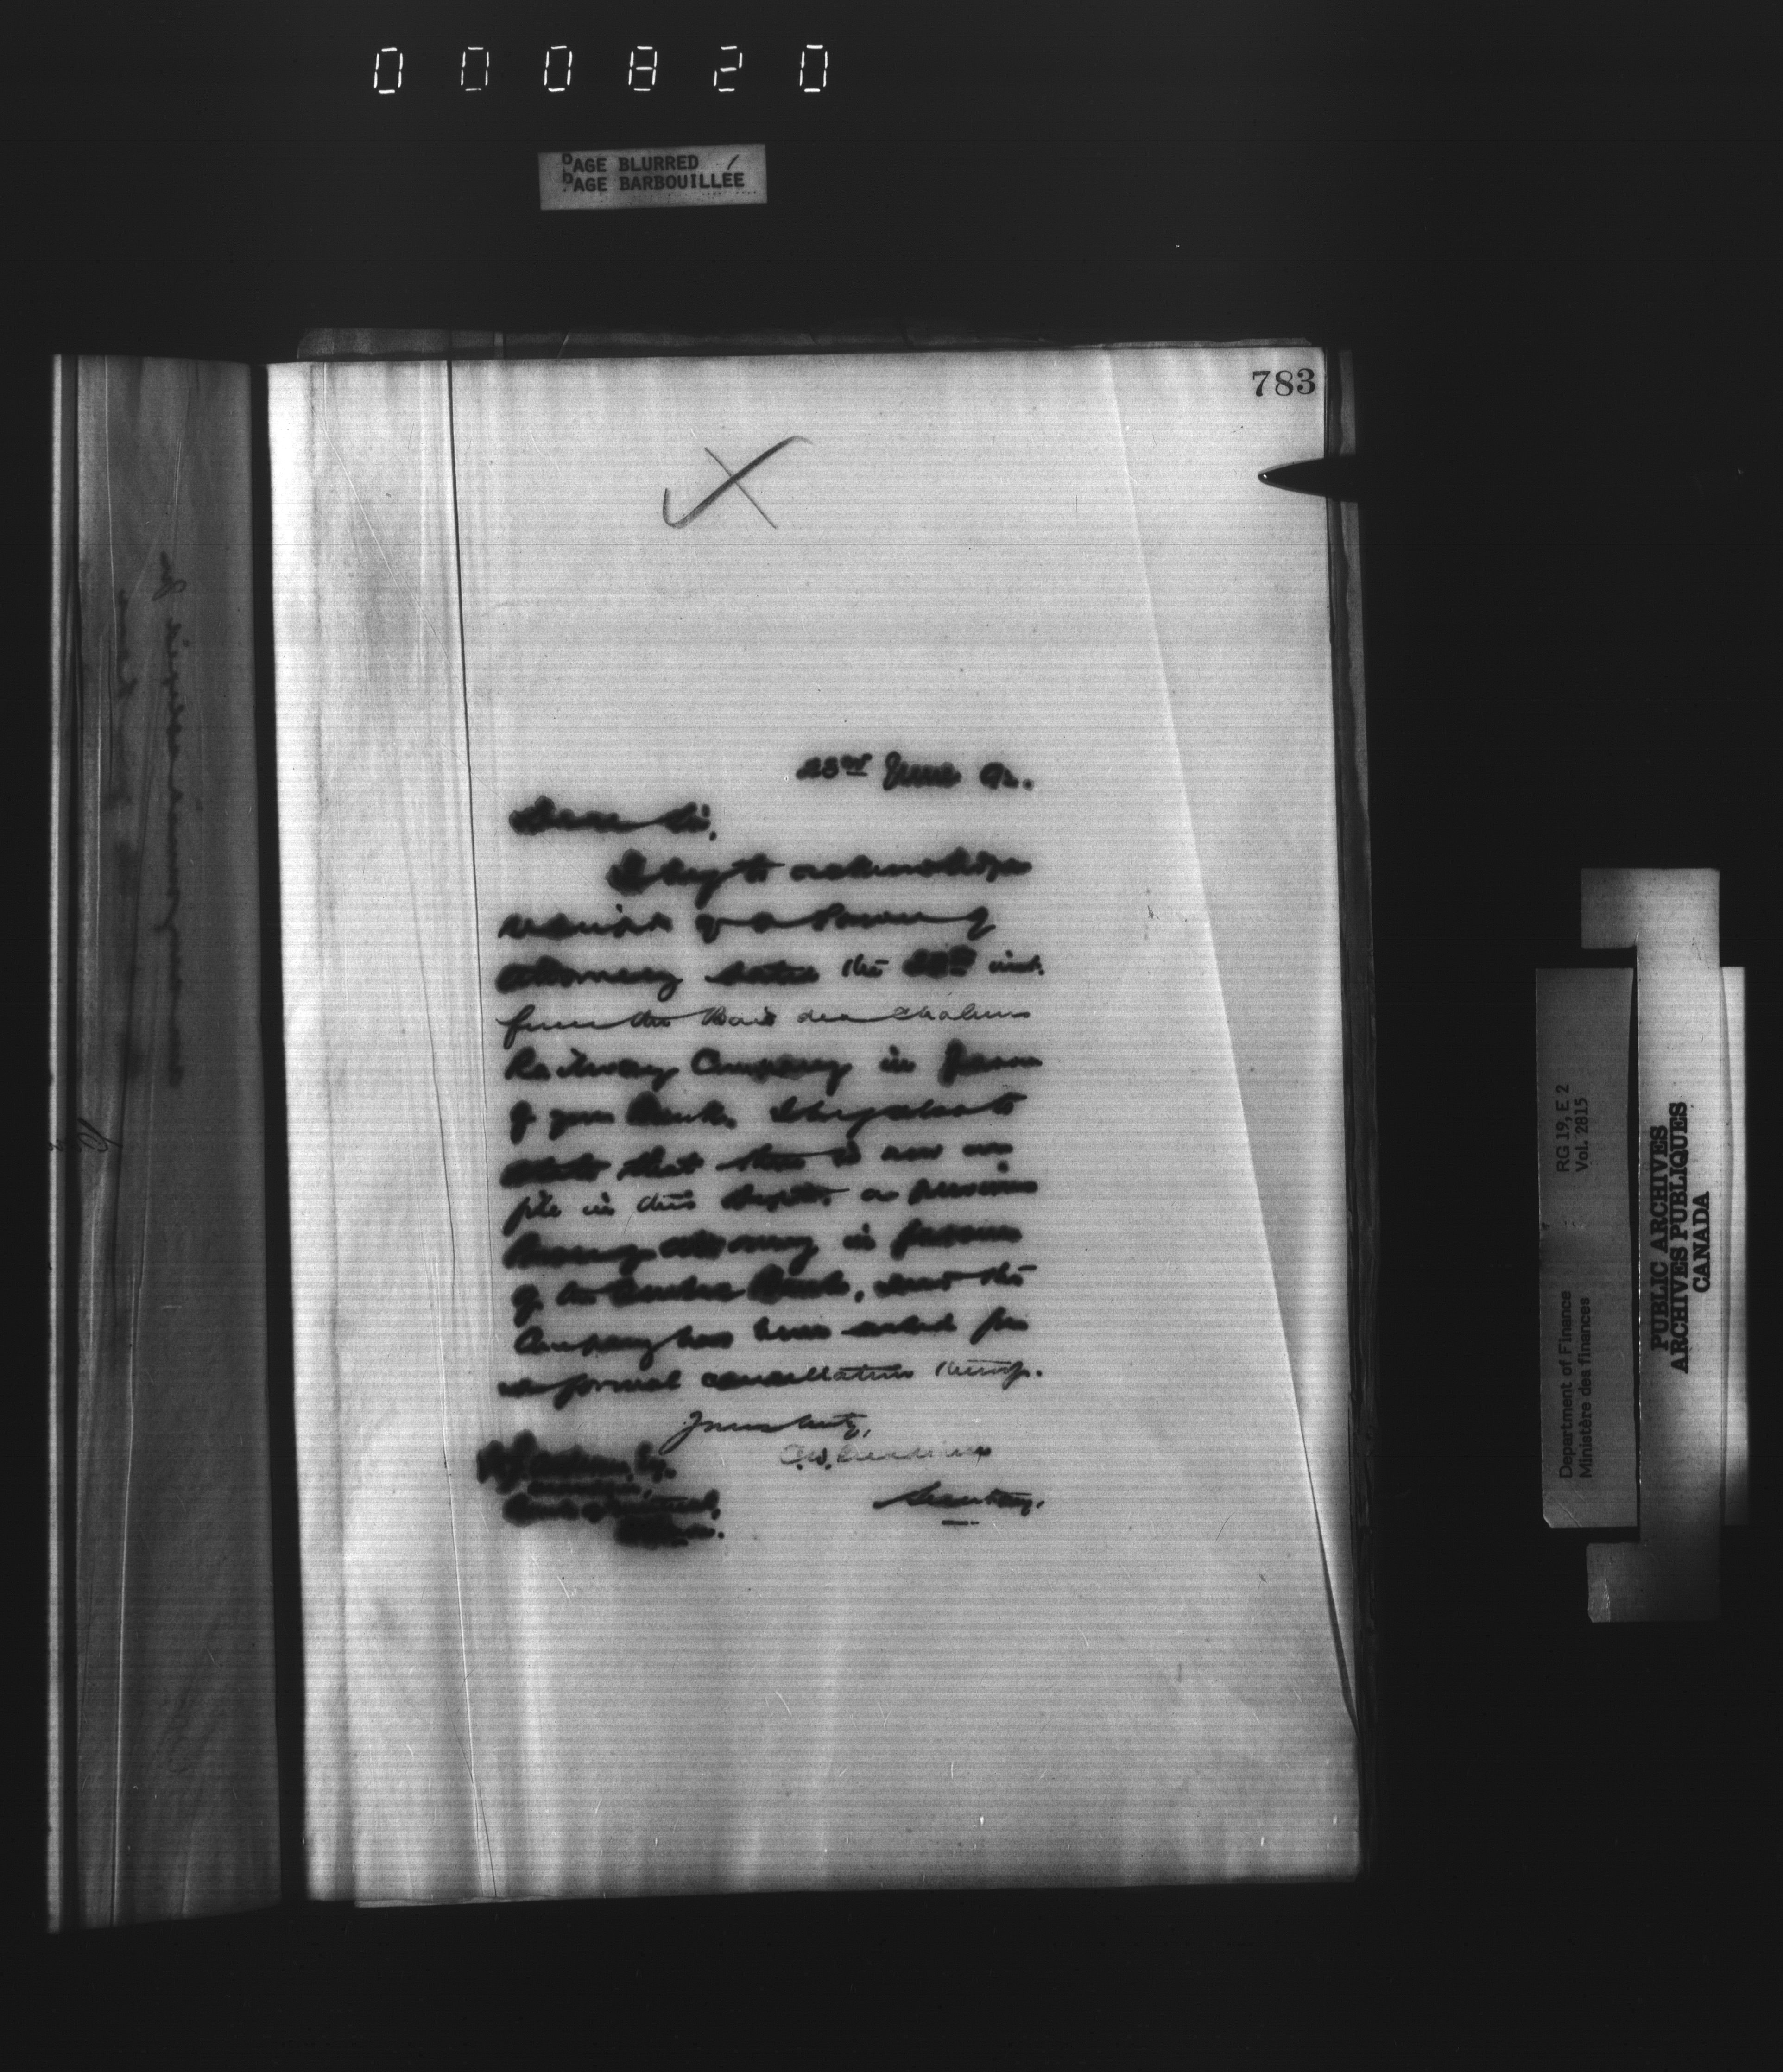 000820
PAGE BLURRED
PAGE BARBOUILLÉE
783
23rd June 92.
Dear Sir,
I beg to acknowledge
receipt of a Power of
Attorney dated the inst.
from the Baie des Chaleurs
Railway Company in favor
of your Bank. I beg also to
state that there is now on
file in this Dept. a previous
Power of Attorney in favour
of the Bank, and the
Company has been asked for
a formal cancellation thereof.
Yours truly,
Esq.
Manager,
Bank of Montreal,
Ottawa.
Secretary.
RG 19, E 2
Vol. 2815
Department of Finance
Ministère des finances
PUBLIC ARCHIVES
ARCHIVES PUBLIQUES
CANADA